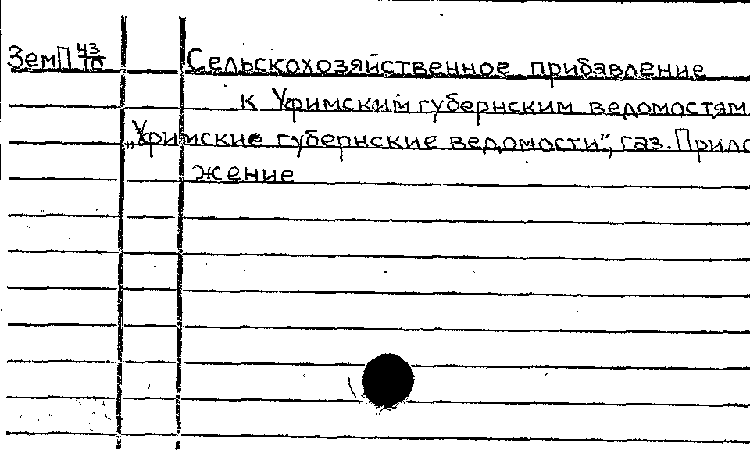 ЗемП 43/10 Сельскохозяйственное прибавление
к Уфимским губернским ведомостям.
„Уфимские губернские ведомости”, газ. Прило
жение